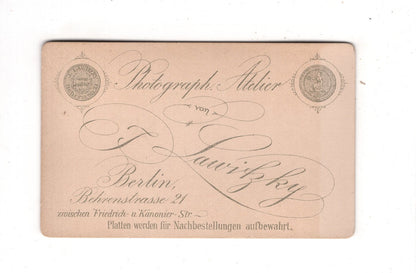 Photograph. Atelier
von
F. Sawitzky
Berlin,
Behrenstrasse 21
zwischen Friedrich- u Kanonier-Str.
Platten werden für Nachbestellungen aufbewahrt.